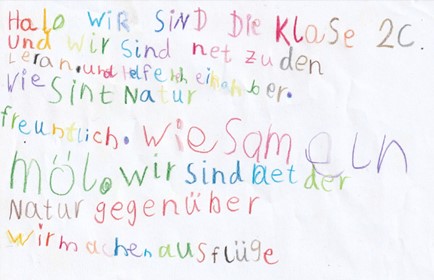 Halo WiR SiND Die KlaSe 2C.
und wir sind net zu den
Leran. und helfe nich einander.
Wie Sint Natur
freuntlich. Wie Sameln
möl. wir sind net der
Natur gegenüber
wir machen ausflüge